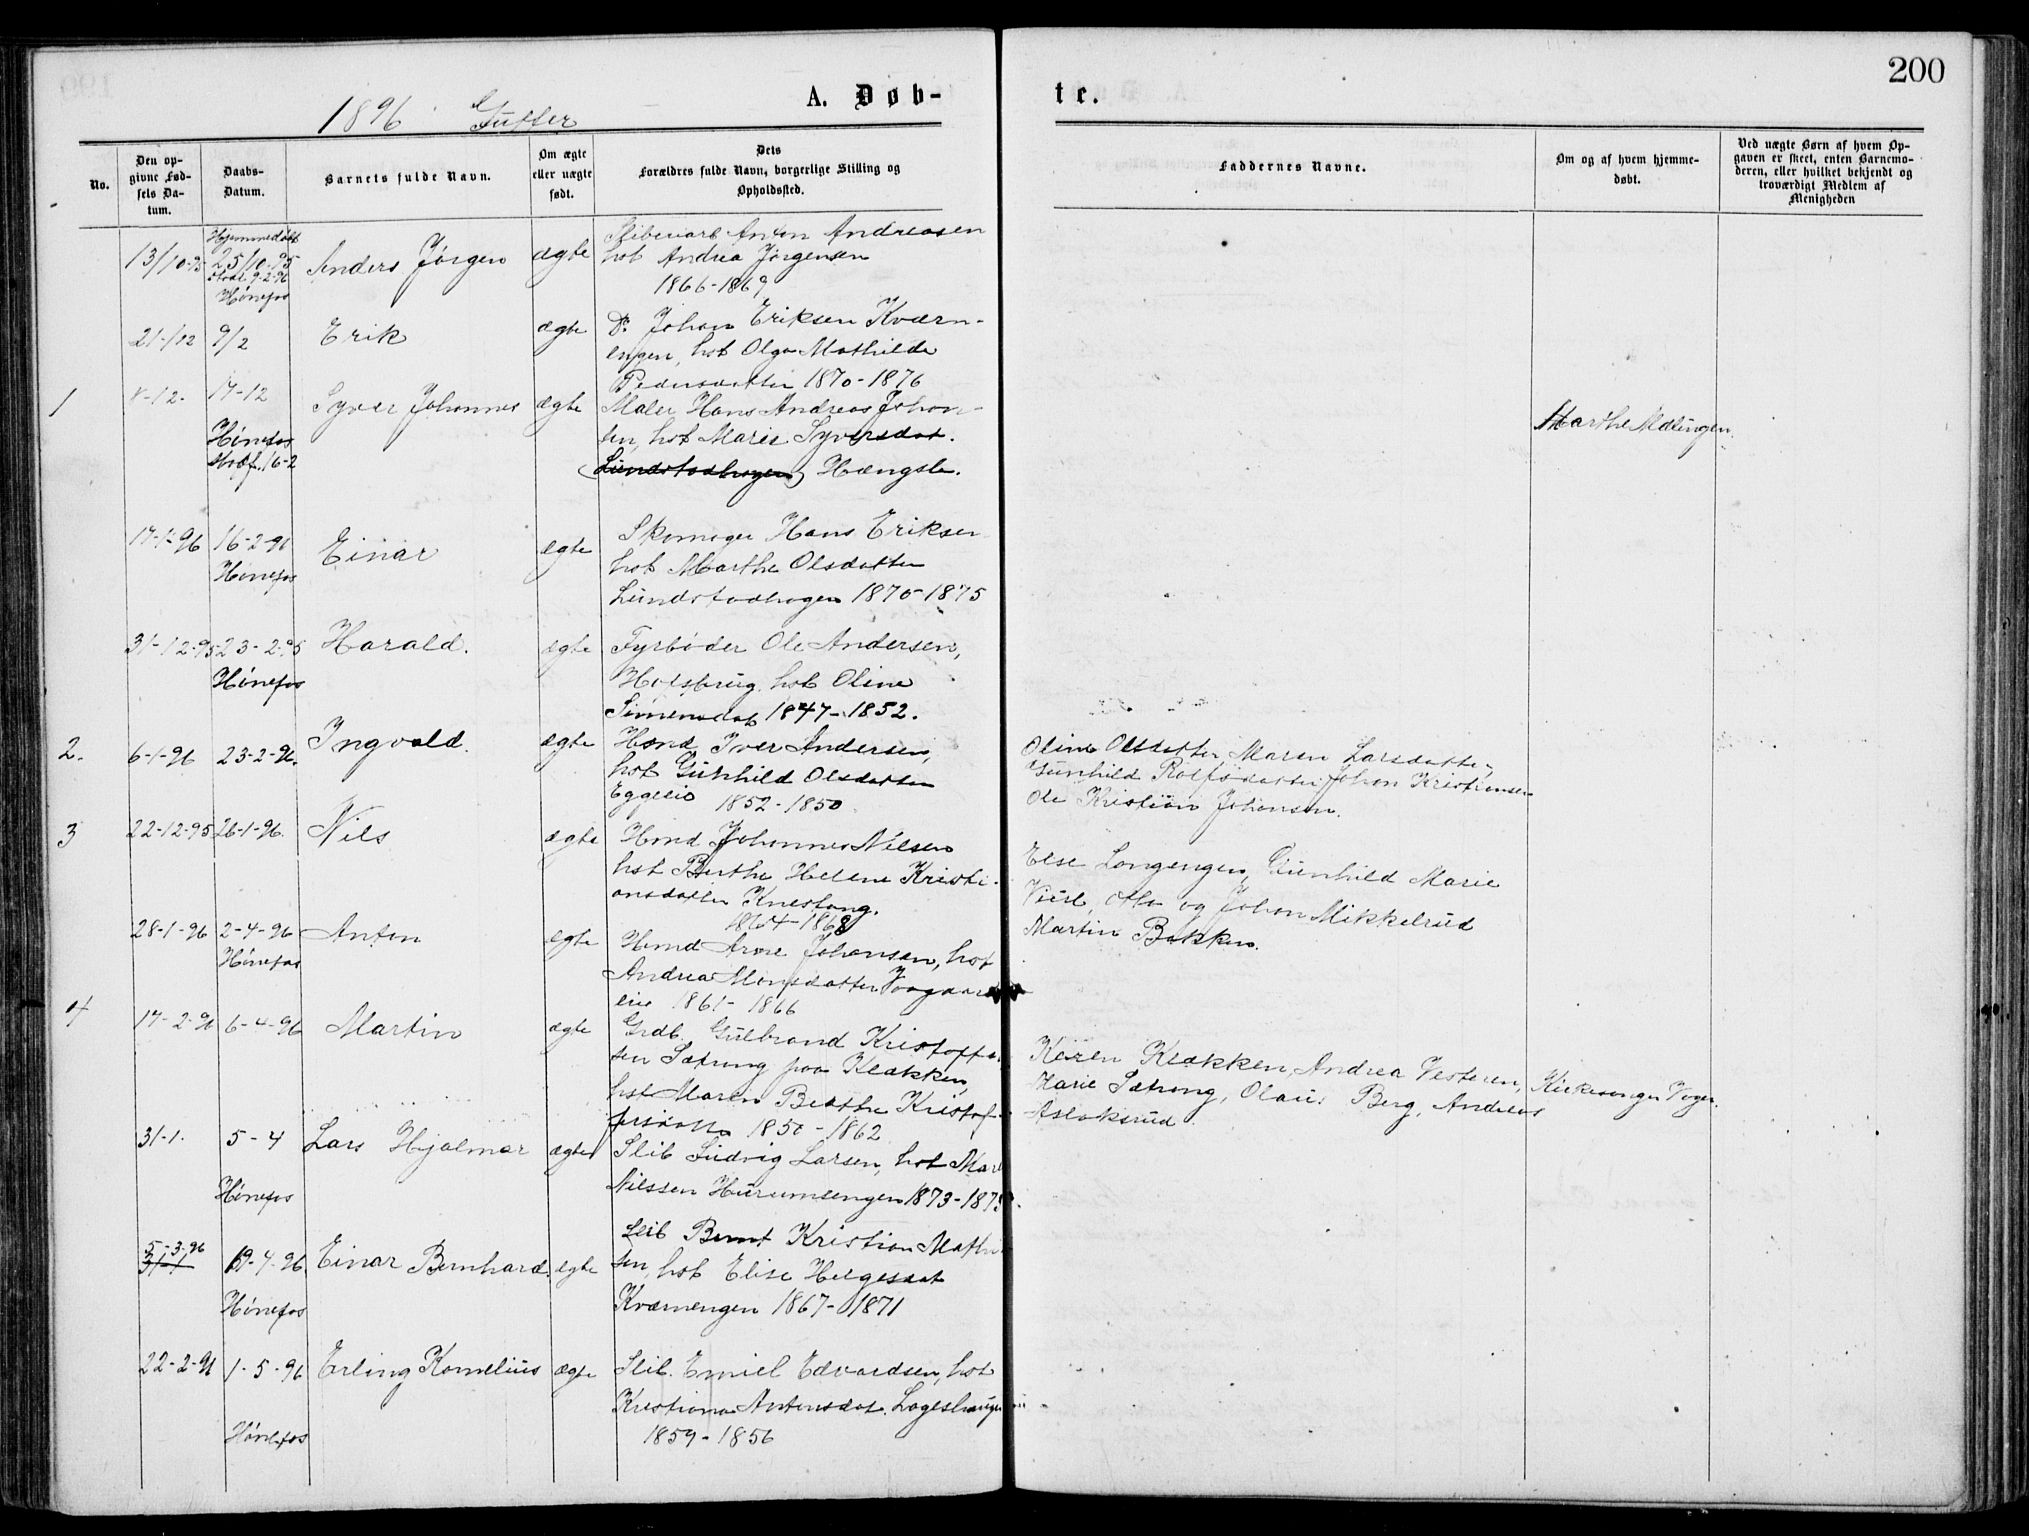 200
1896 Gutter
A. Døb-
te.
No.
Den op-
givne Fød-
sels Da-
tum.
Daabs-
Datum.
Barnets fulde Navn.
Om ægte
eller uægte
født.
Dets
Forældres fulde Navn, borgerlige Stilling og
Opholdssted.
Faddernes Navne.
Om og af hvem hjemme-
døbt.
Ved uægte Børn af hvem Op-
gaven er skeet, enten Barnemo-
deren, eller hvilket bekjendt og
troværdigt Medlem af
Menigheden
13/10-95
Hjemmedøbt
25/10-95
9-2-96
Hønefos
Anders Jørgen
ægte
Anton Andreasen
hst Andrea Jørgensen
1866-1869
21/12
9/2
Erik
ægte
Do Johan Eriksen Kværn-
engen, hst Olga Mathilde
Pedersdatter 1870-1876
1
8-12-
17-12
Hønefos
Stadf. 16-2
Syver Johannes
ægte
Maler Hans Andreas Johan-
sen, hst Marie Syversdat.
(Lundstadhagen) Hængsle.
Marthe Mælingen.
17-1-96
16-2-96
Hønefos
Einar
ægte
Skomager Hans Eriksen
hst Marthe Olsdatter
Lundstadhagen 1870-1875
31-12-95
23-2-95
Hønefos
Harald.
ægte
Fyrbøder Ole Andersen,
Hofsbrug, hst Oline
Simensdat 1847-1852.
2.
6-1-96
23-2-96.
Ingvald.
ægte
Hmd Iver Andersen,
hst Gunhild Olsdatter
Eggeeie 1852-1850
Oline Olsdatter, Maren Larsdatter,
Gunhild Rolfsdatter, Johan Kristiansen
Ole Kristian Johansen.
3
22-12-95
26-1-96.
Nils
ægte
Hmd Johannes Nilsen
hst Berthe Helene Kristi-
ansdatter Knestang.
1864-1868
Else Langengen, Gunhild Marie
Viul, Otto og Johan Mikkelrud
Martin Bakken.
28-1-96
2-4-96
Hønefos
Anton
ægte
Hmd Arne Johansen, hst
Andrea Monsdatter Vaagaard
eie 1861-1866
4
17-2-96
6-4-96
Martin
ægte
Grdb. Gulbrand Kristoffer
sen Sætrang paa Klækken,
hst Maren Beathe Kristof-
fersdatter 1850-1862
Karen Klækken, Andrea Vesteren,
Marie Sætrang, Olaus Berg, Andreas
Aslaksrud.
Kirkesanger Vager.
31-1.
5-4
Hønefos
Lars Hjalmar
ægte
Slib Ludvig Larsen, hst Mar
Nilssen Hurumsengen 1873-1873.
5-3-96
31-1
19-4-96
Hønefos
Einar Bernhard.
ægte
Slib Bernt Kristian Mathi
sen, hst Elise Helgesdat
Kværnengen 1867-1871
22-2-96
1-5-96
Hønefos
Erling Kornelius
ægte
Slib. Emiel Edvardsen, hst
Kristiane Antonsdat. Lageshaugen
1859-1856